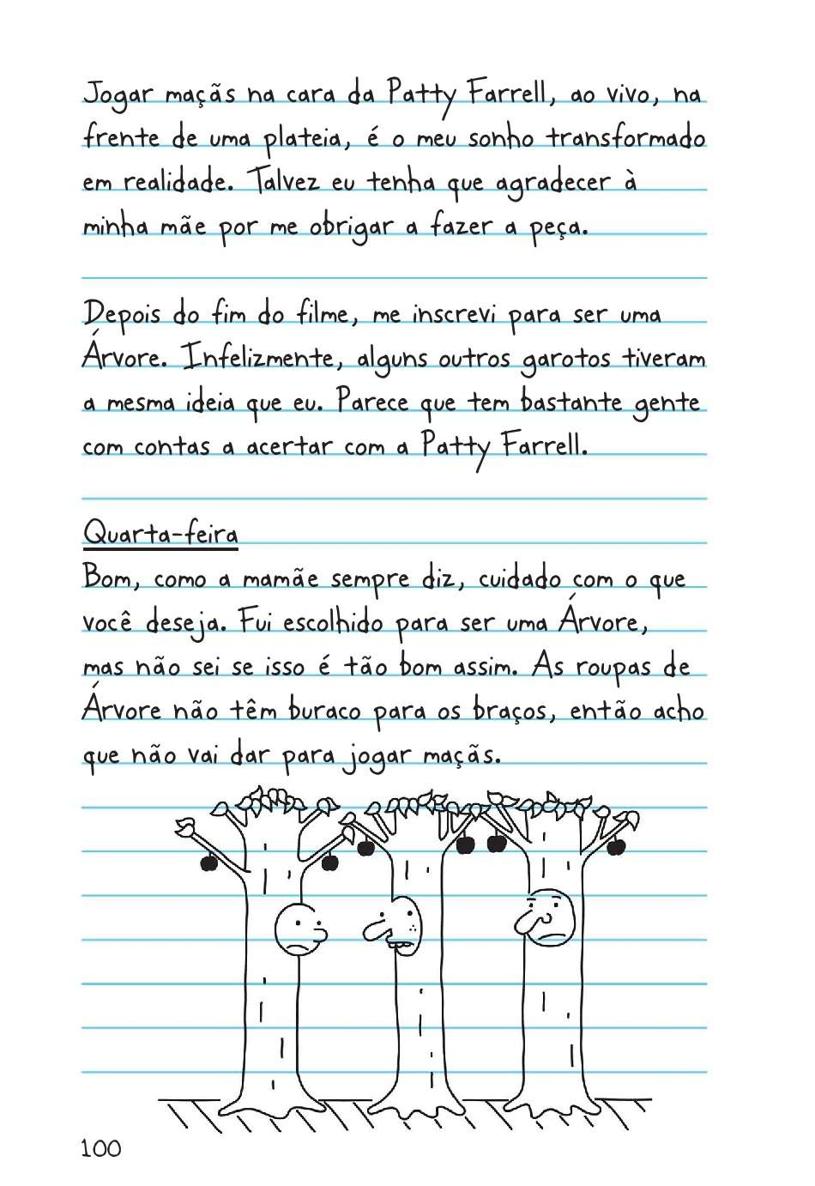 Jogar maçãs na cara da Patty Farrell, ao vivo, na
frente de uma plateia, é o meu sonho transformado
em realidade. Talvez eu tenha que agradecer à
minha mãe por me obrigar a fazer a peça.
Depois do fim do filme, me inscrevi para ser uma
Árvore. Infelizmente, alguns outros garotos tiveram
a mesma ideia que eu. Parece que tem bastante gente
com contas a acertar com a Patty Farrell.
Quarta-feira
Bom, como a mamãe sempre diz, cuidado com o que
você deseja. Fui escolhido para ser uma Árvore,
mas não sei se isso é tão bom assim. As roupas de
Árvore não têm buraco para os braços, então acho
que não vai dar para jogar maçãs.
100